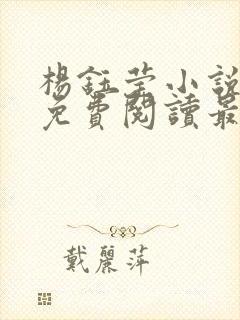 楊鈺瑩小說
免費閱讀最
戴麗萍